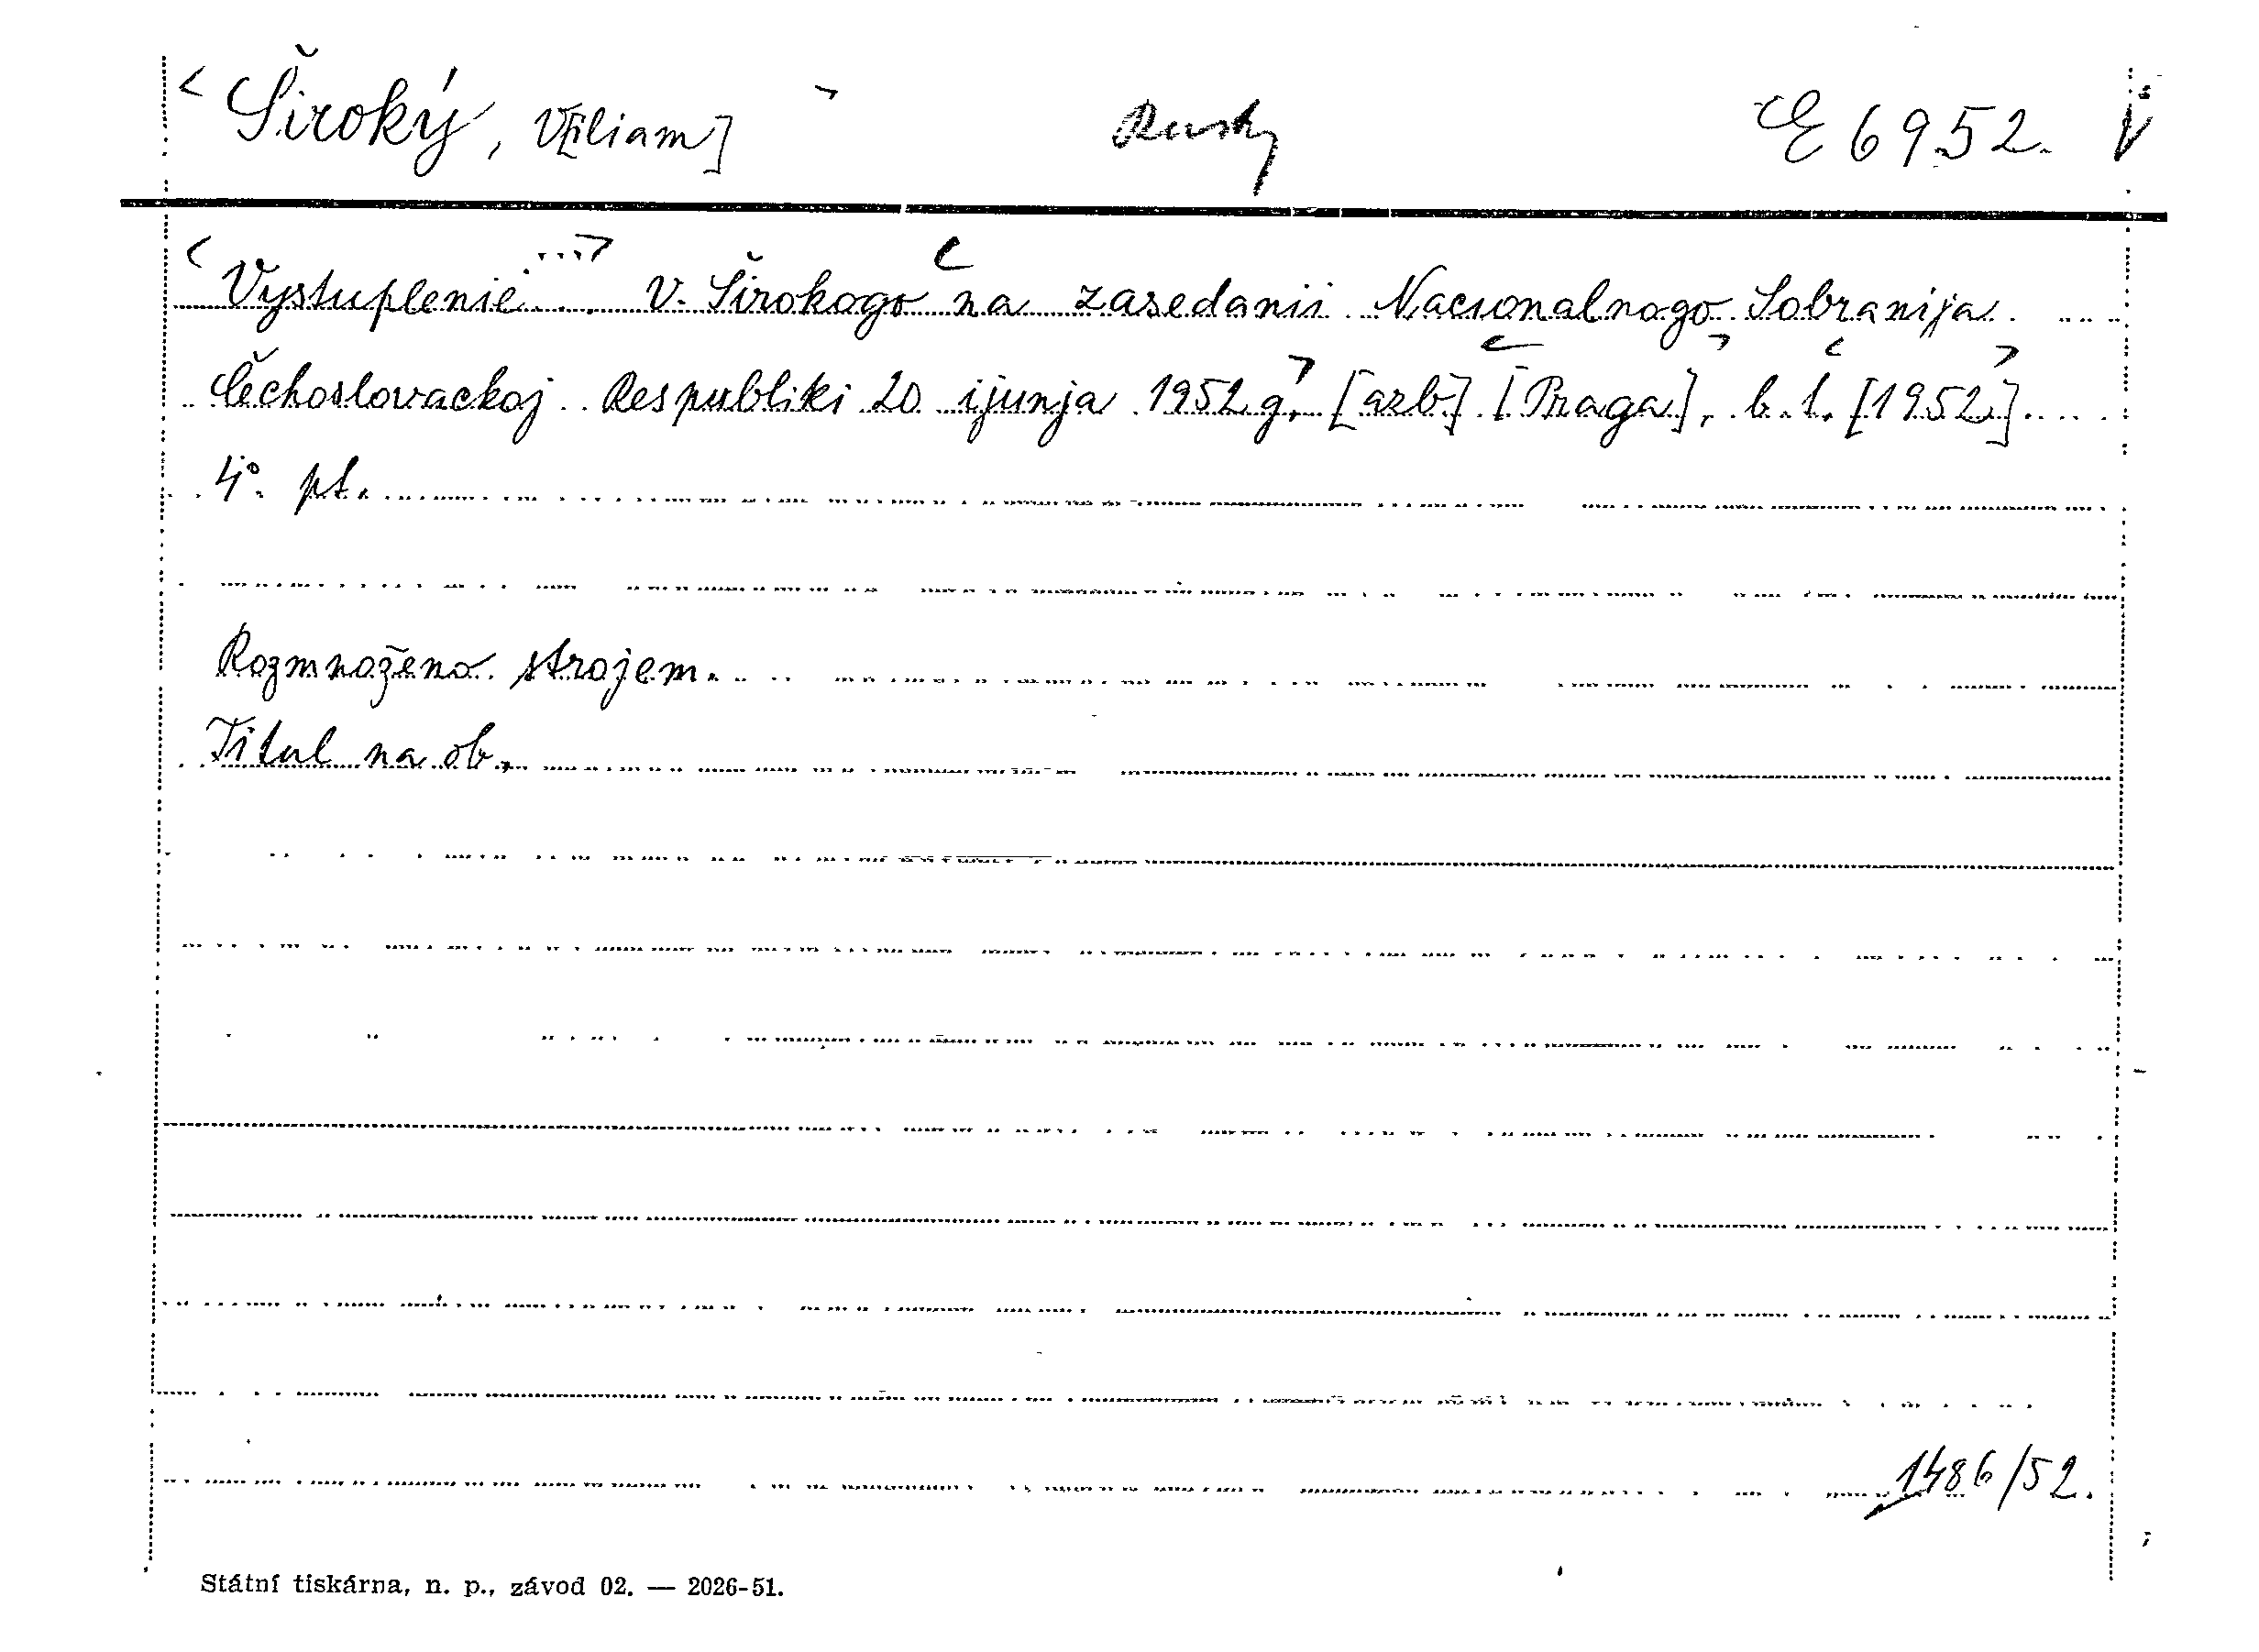 Široký, V[iliam] Rusky E 6952.
Vystuplenie... V. Širokogo na zasedanii Nacionalnogo Sobranija
Čechoslovackoj Respubliki 20 ijunja 1952 g. [azb] [Praga], b. t. [1952].
4°. pt.
Rozmnoženo strojem.
Titul na ob.
1486/52.
Státní tiskárna, n. p., závod 02. — 2026-51.